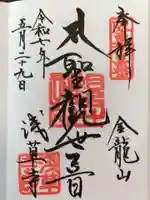 奉拝
金龍山
聖観世音
浅草寺
令和七年
五月二十九日